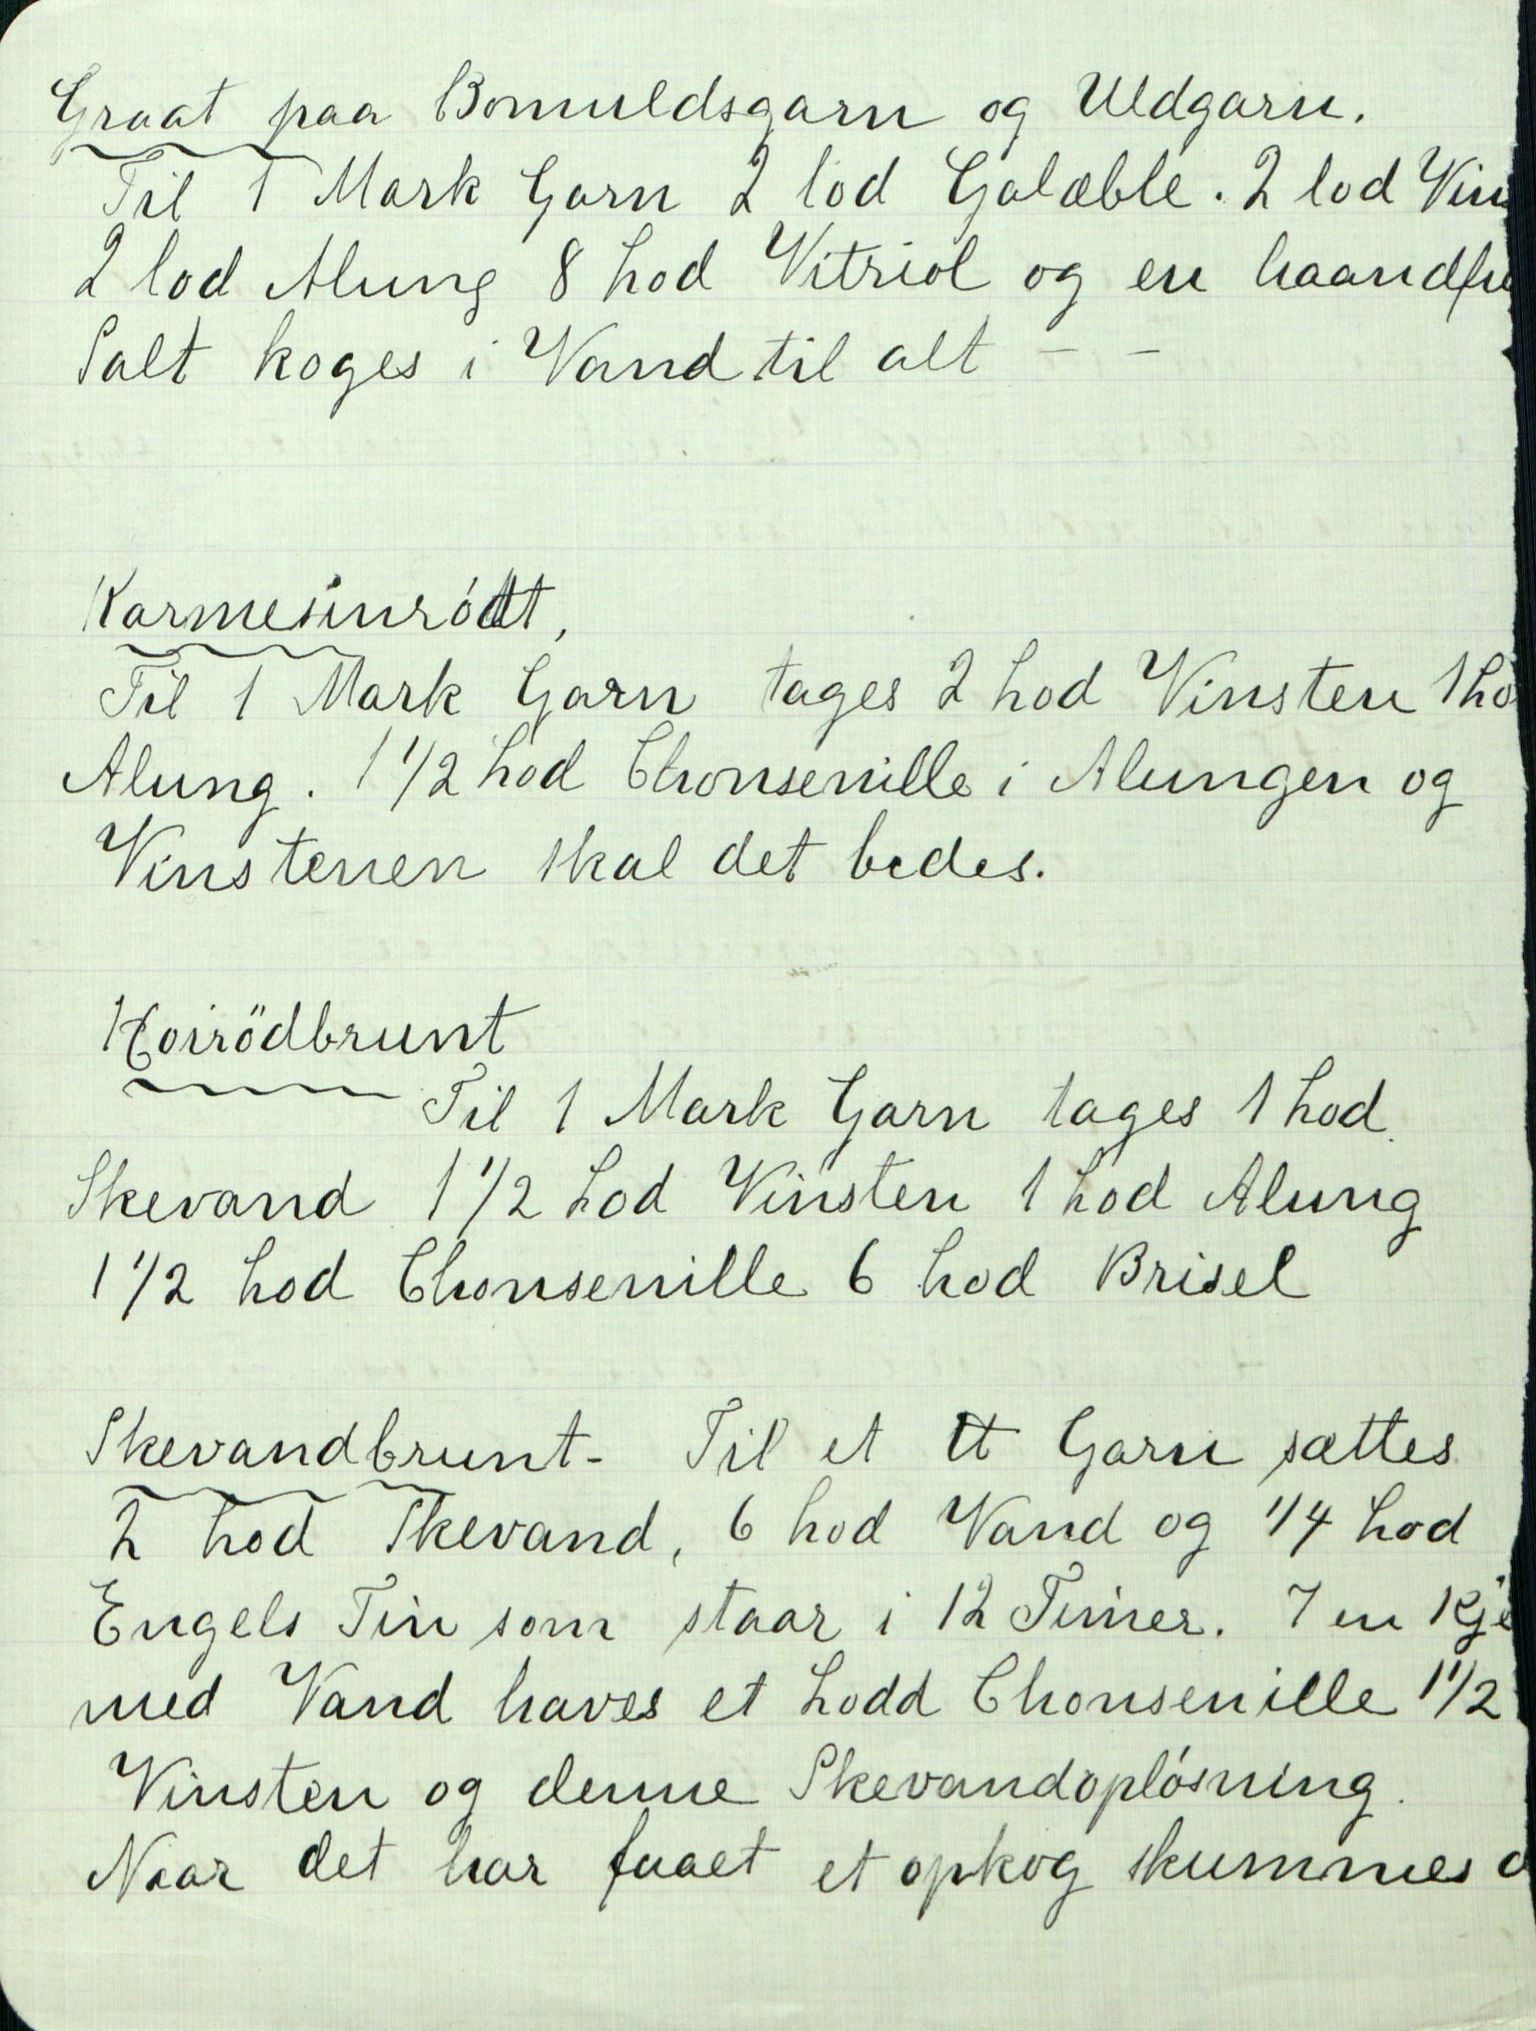 Graat paa Bomuldsgarn og Uldgarn.
Til 1 Mark Garn 2 lod Galæble. 2 lod Vin
2 lod Alung 8 Lod Vitriol og en haandfu
Salt koges i Vand til alt — —
Karmesinrødt,
Til 1 Mark Garn tages 2 Lod Vinsten 1 Lo
Alung. 1 1/2 Lod Chonsenille i Alungen og
Vinstenen skal det bedes.
Høirödbrunt
Til 1 Mark Garn tages 1 Lod
Skevand 1 1/2 Lod Vinsten 1 Lod Alung
1 1/2 Lod Chonsenille 6 Lod Brisel
Skevandbrunt - Til et ℔ Garn sættes
2 Lod Skevand, 6 Lod Vand og 1/4 Lod
Engels Tin som staar i 12 Timer. I en Kje
med Vand haves et Lodd Chonsenille 1 1/2
Vinsten og denne Skevandopløsning.
Naar det har faaet et opkog skummes